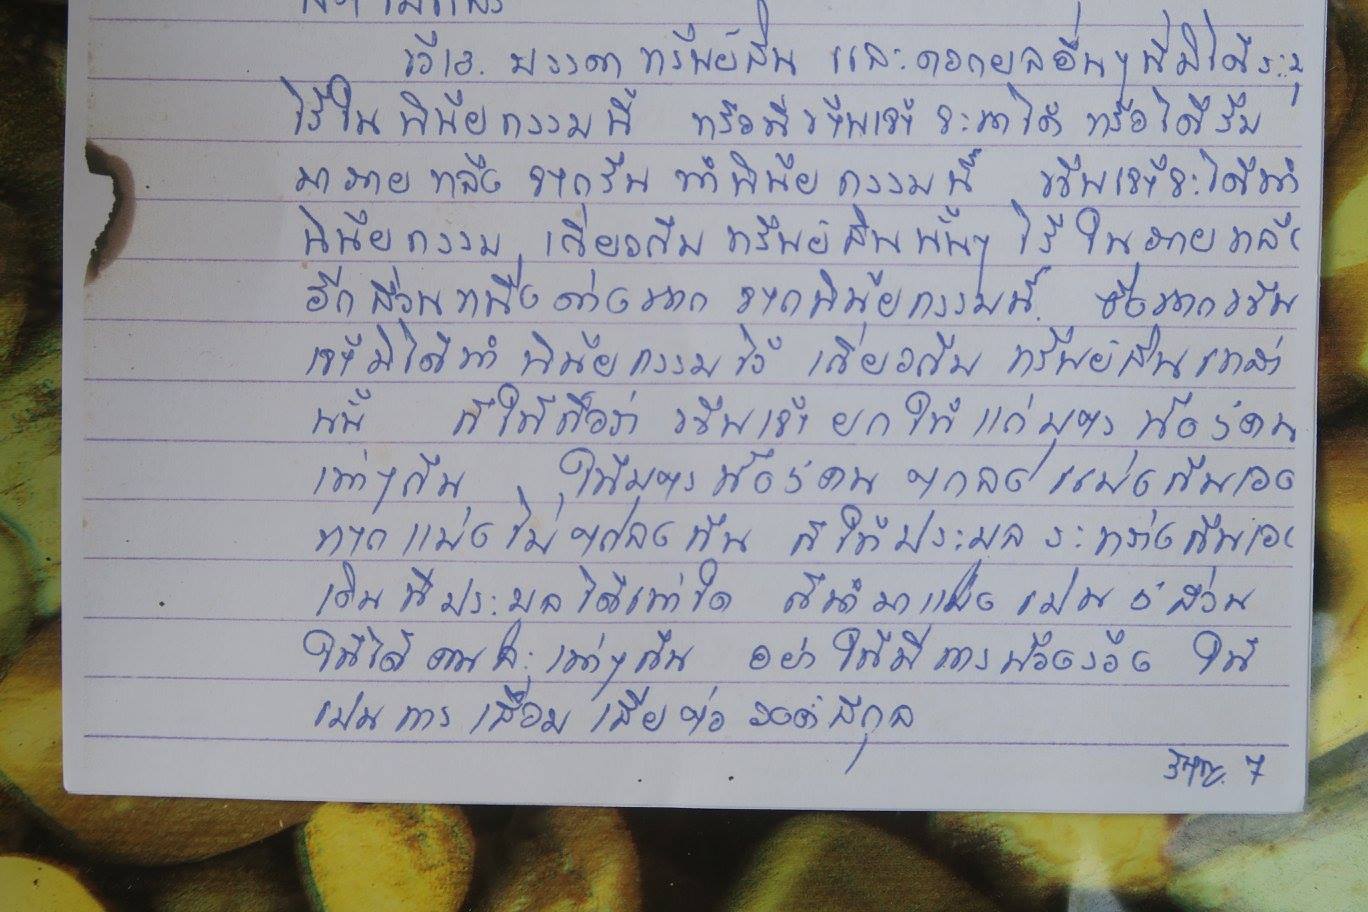 ข้อ ๓. บรรดาทรัพย์สิน และดอกผลอื่นๆ ที่มิได้ระบุ
ไว้ในพินัยกรรมนี้ หรือที่ข้าพเจ้าจะหาได้ หรือได้รับ
มาภายหลังจากวันทำพินัยกรรมนี้ ข้าพเจ้าจะได้ทำ
พินัยกรรมเกี่ยวกับทรัพย์สินนั้นๆ ไว้ในภายหลัง
อีกส่วนหนึ่งต่างหากจากพินัยกรรมนี้ ซึ่งหากข้าพ
เจ้ามิได้ทำพินัยกรรมไว้ เกี่ยวกับทรัพย์สินเหล่า
นี้ ก็ให้ถือว่า ข้าพเจ้ายกให้แก่บุตรทั้ง ๕ คน
เท่าๆกัน ให้บุตรทั้ง ๕ คน ตกลงแบ่งกันเอง
หากแบ่งไม่ตกลงกัน ก็ให้ประมูลระหว่างกันเอง
เงินที่ประมูลได้เท่าใด ก็นำมาแบ่งเป็น ๕ ส่วน
ให้ได้คนละเท่าๆกัน อย่าให้มีการฟ้องร้อง ให้
เป็นการเสื่อมเสียต่อวงศ์สกุล
7